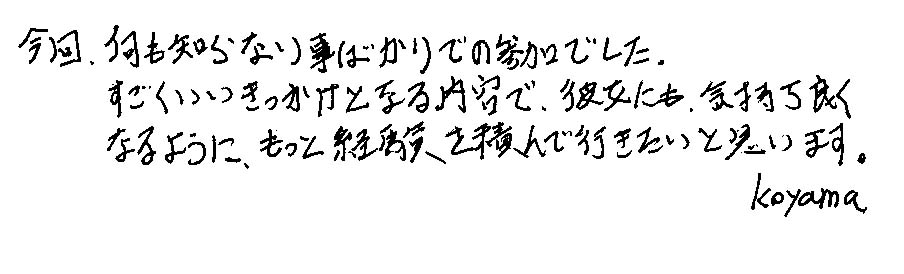 今回、何も知らない事ばかりでの参加でした。
すごくいいきっかけとなる内容で、彼女にも、気持ち良く
なるように、もっと経験を積んで行きたいと思います。
koyama